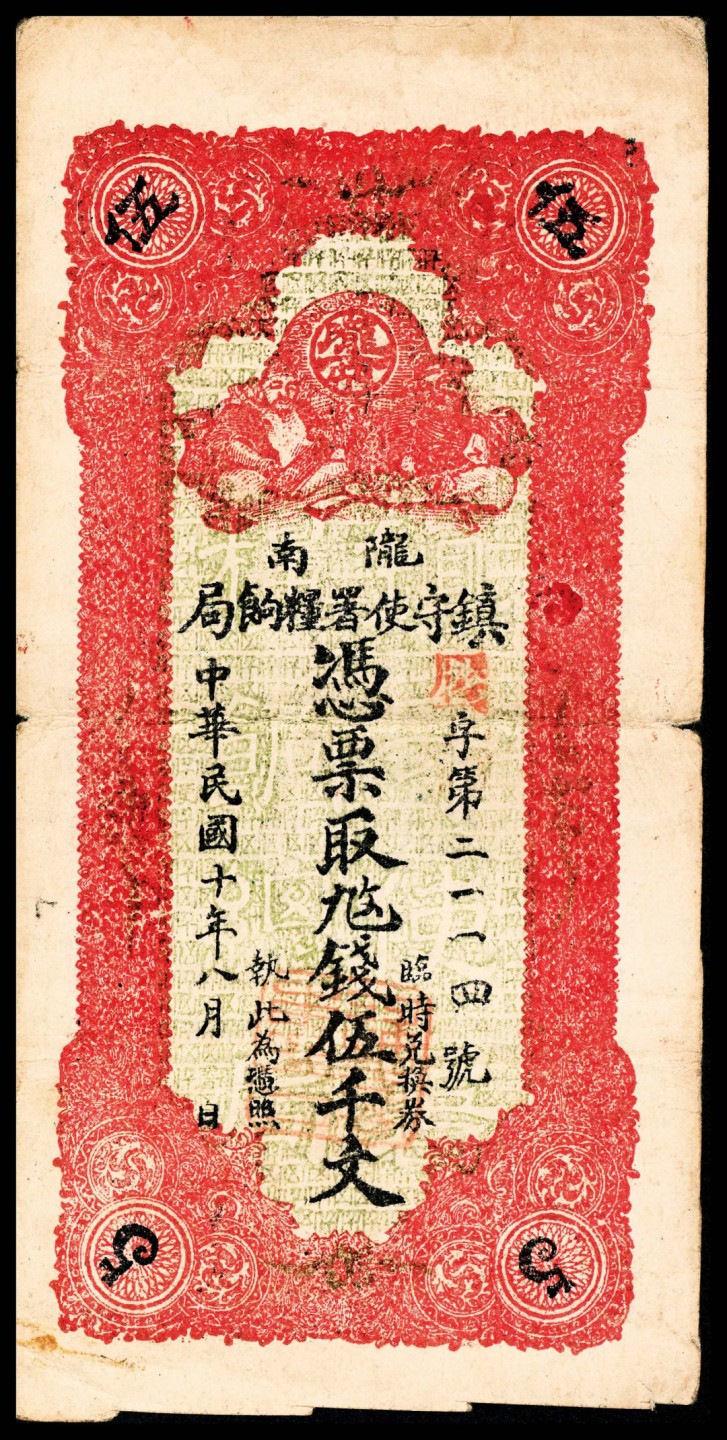 伍 伍
隴南
鎮守使署糧餉局
字第二一一四號
臨時兌換券
憑票取尨錢伍千文
執此為憑照
中華民國十年八月 日
5 5